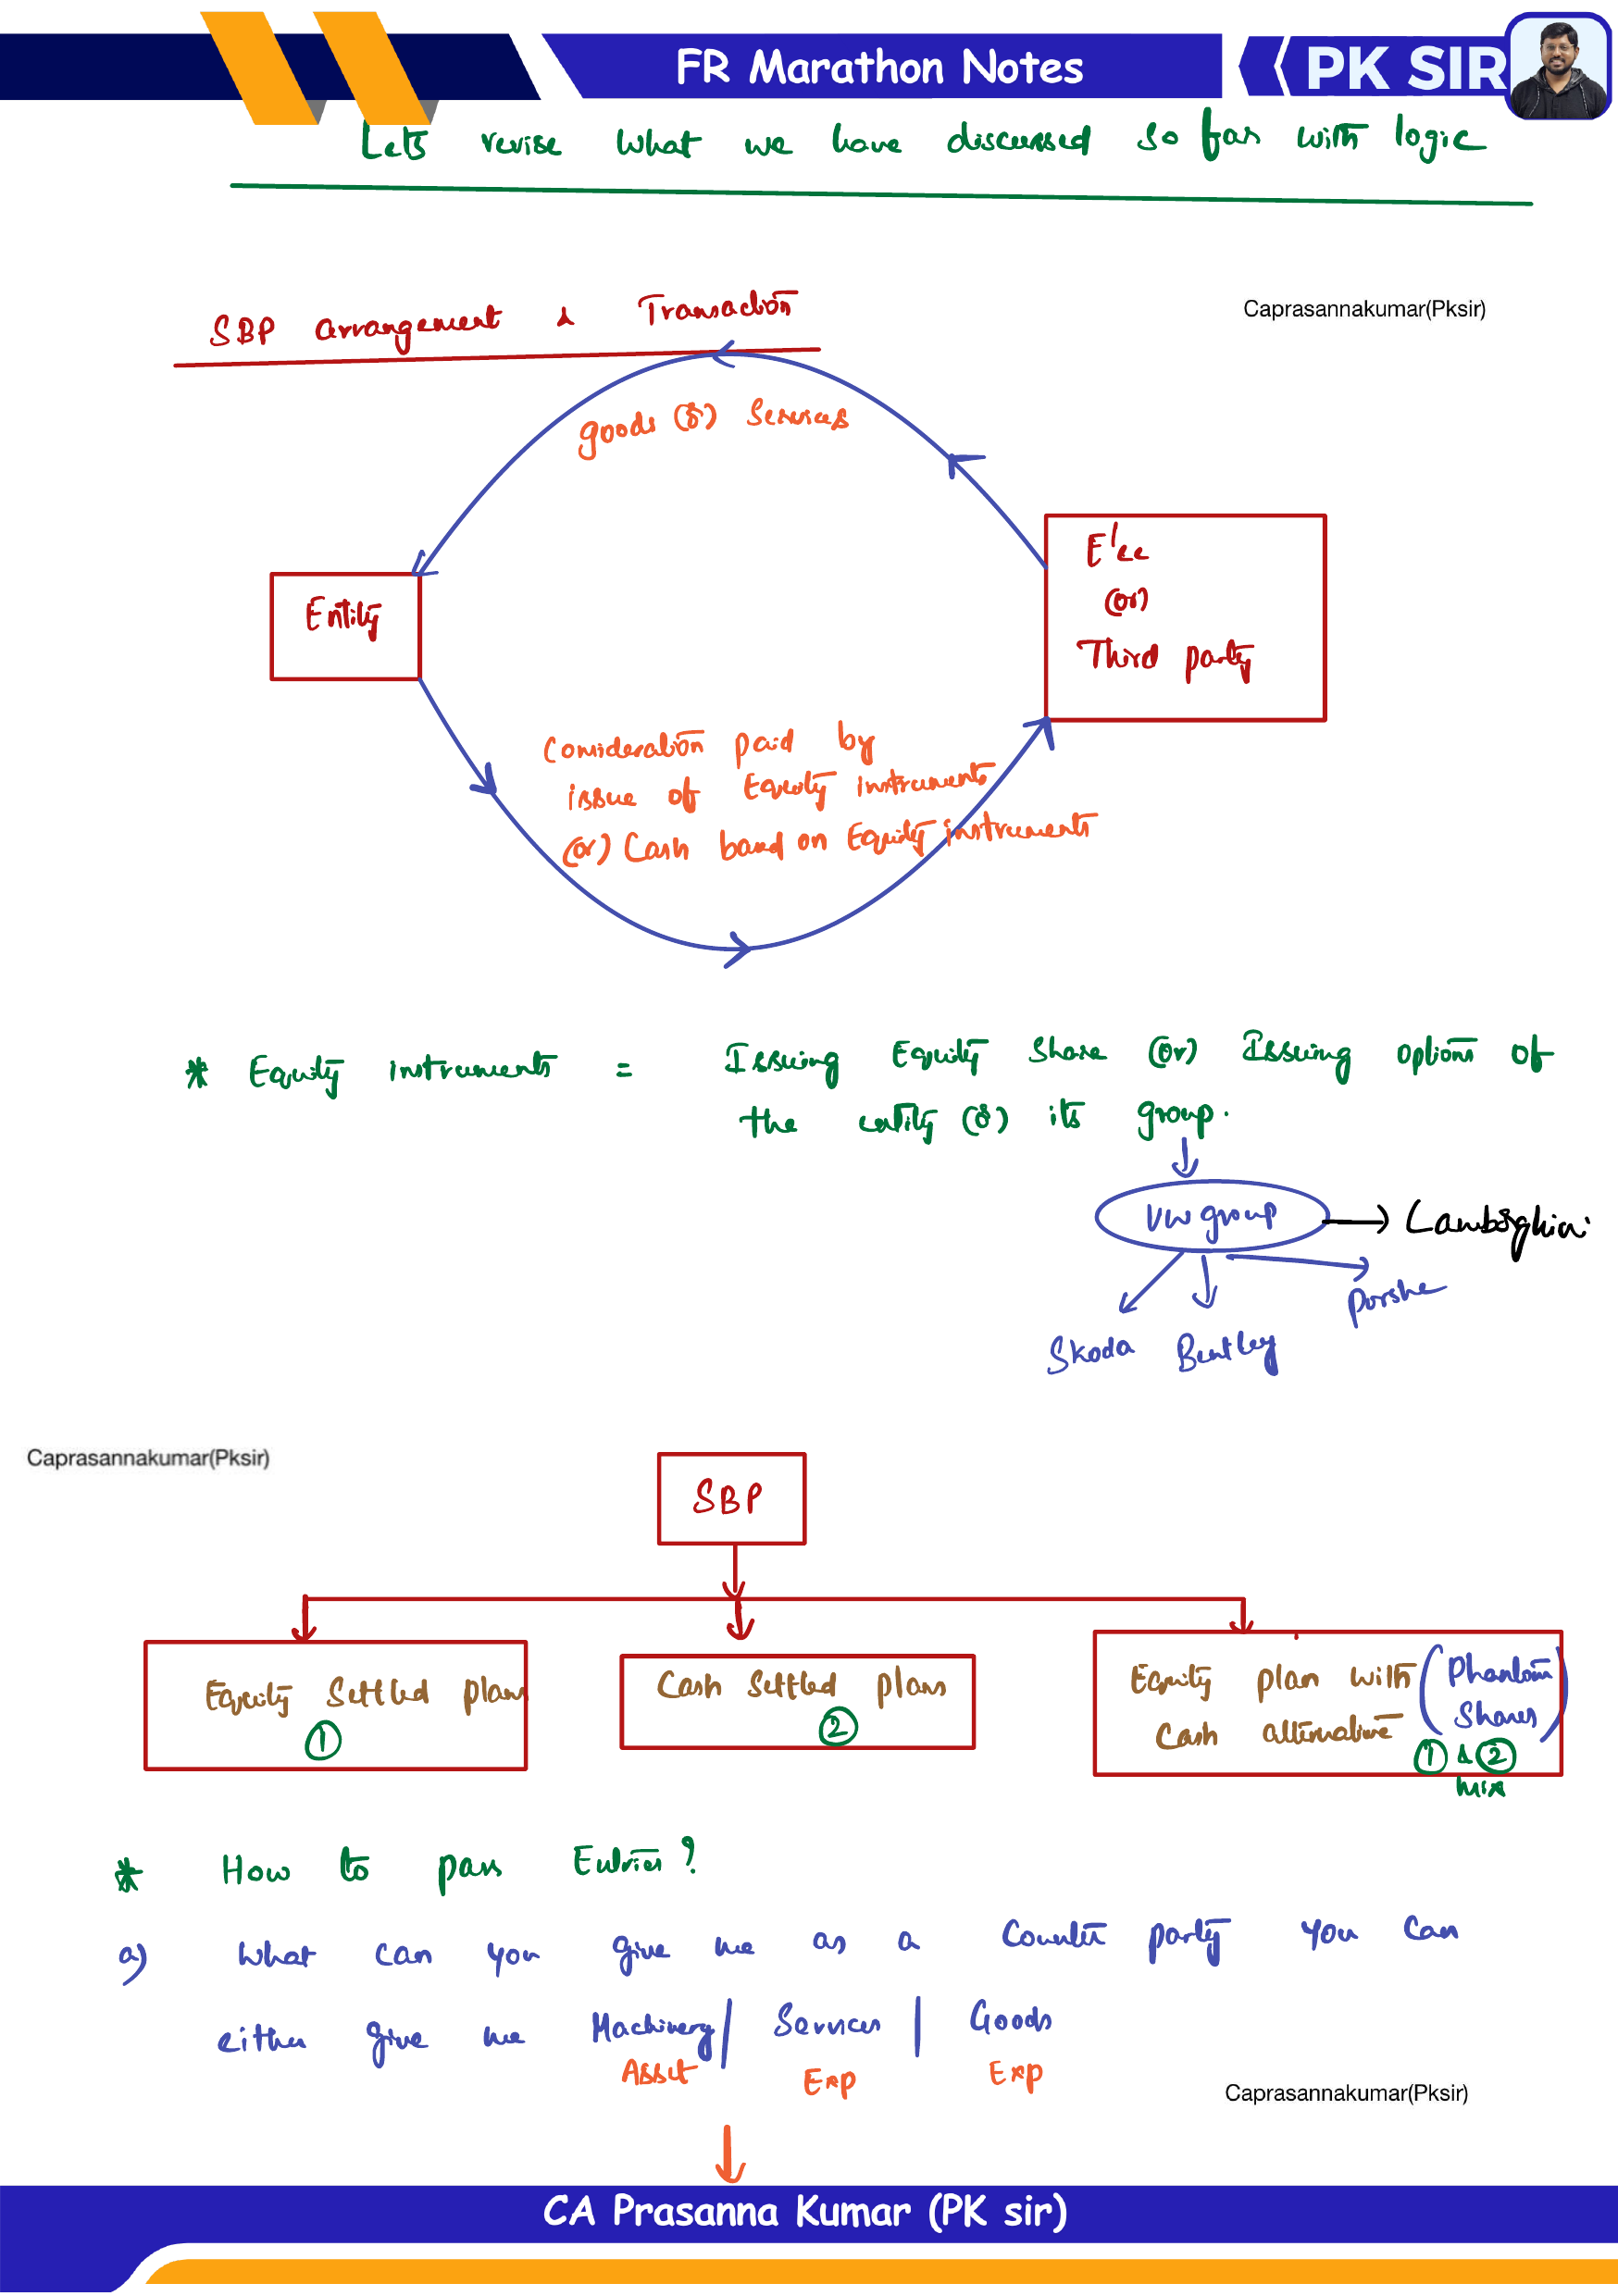 FR Marathon Notes
PK SIR
Lets revise what we have discussed so far with logic
SBP arrangement & Transaction
Caprasannakumar(Pksir)
goods (or) Services
Entity
E'ee
(or)
Third party
Consideration paid by
issue of Equity instruments
(or) Cash based on Equity instruments
* Equity instruments = Issuing Equity Share (or) Issuing options of
the entity (or) its group.
VW group → Lamborghini
Porshe
Skoda Bentley
Caprasannakumar(Pksir)
SBP
Equity Settled plans
①
Cash Settled plans
②
Equity plan with (Phantom
Cash alternative Shares)
① & ②
mix
* How to pass Entries?
a) What can you give me as a Counter party you can
either give me Machinery | Services | Goods
Asset Exp Exp
Caprasannakumar(Pksir)
CA Prasanna Kumar (PK sir)